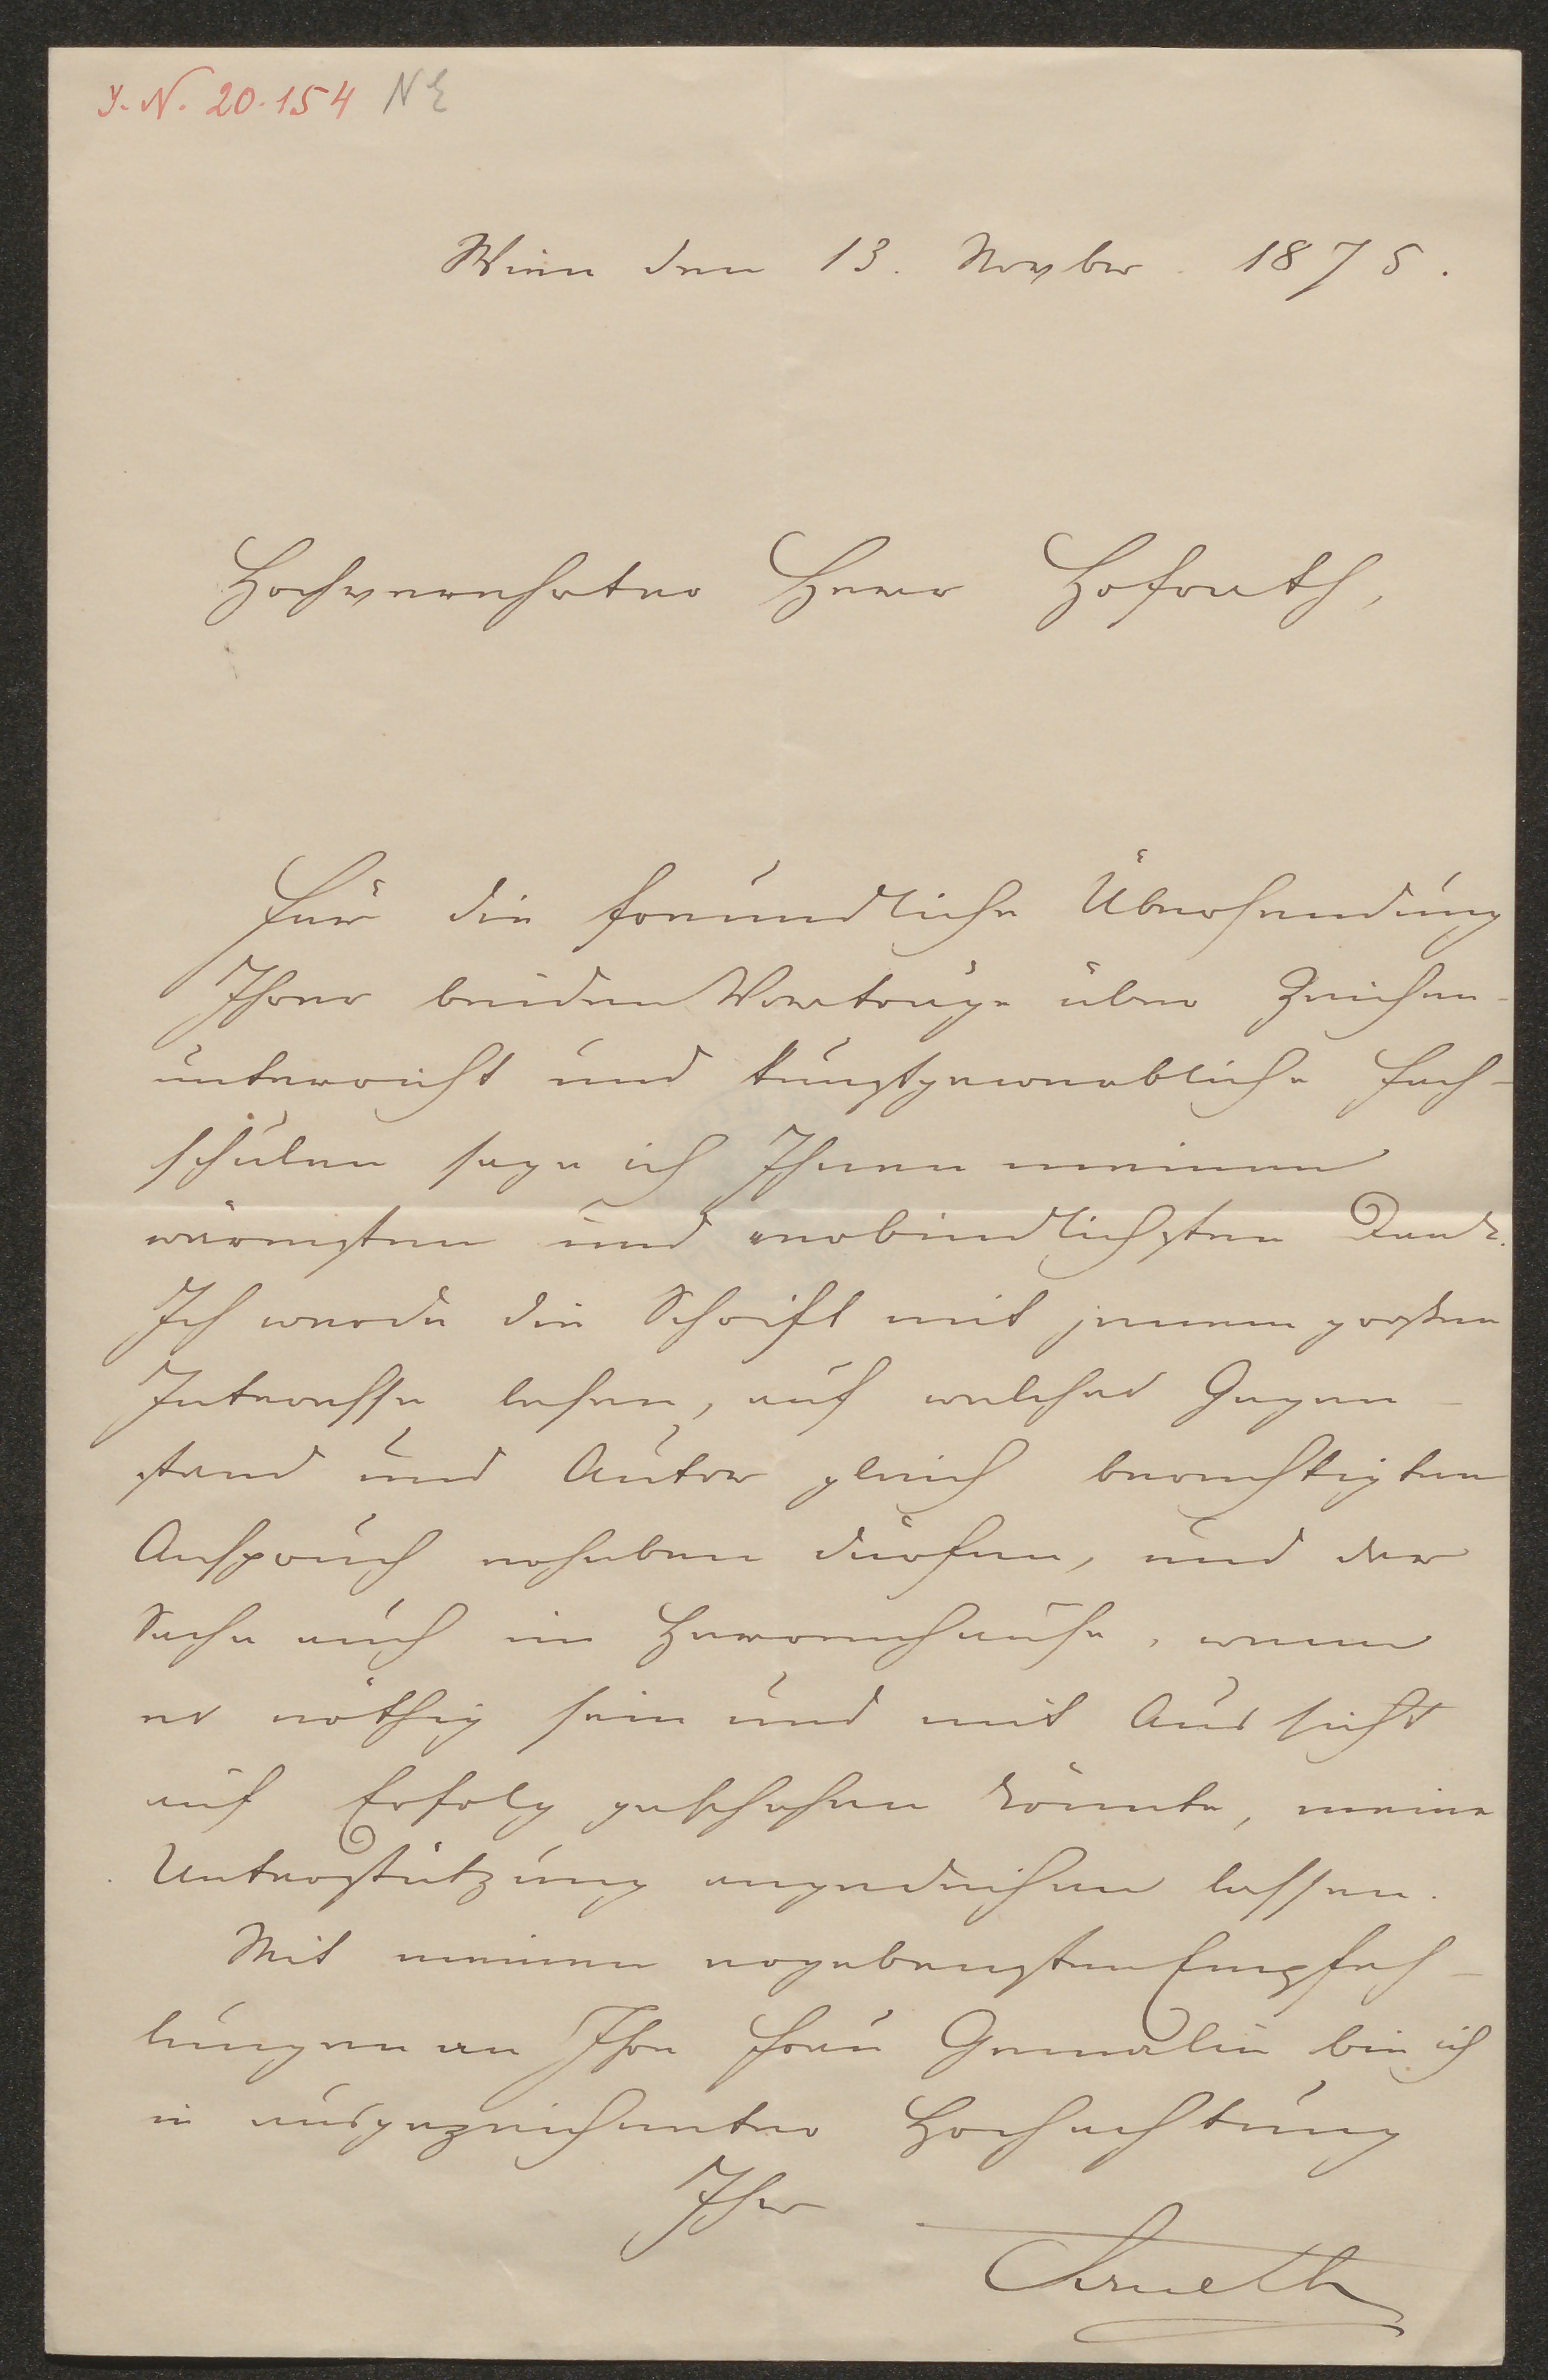 J. N. 20.154 NE
Wien den 13. Novber. 1875.
Hochverehrter Herr Hofrath,
Für die freundliche Übersendung
Ihrer beiden Vorträge über Zeichen-
unterricht und kunstgewerbliche Fach-
schulen sage ich Ihnen meinen
wärmsten und verbindlichsten Dank.
Ich werde die Schrift mit jenem großen
Interesse lesen, auf welches Gegen-
stand und Autor gleich berechtigten
Anspruch erheben dürfen, und der
Sache auch im Herrenhause, wenn
es nöthig sein und mit Aussicht
auf Erfolg geschehen könnte, meine
Unterstützung angedeihen lassen.
Mit meinen ergebensten Empfeh-
lungen an Ihre Frau Gemalin bin ich
in ausgezeichneter Hochachtung
Ihr
Arneth